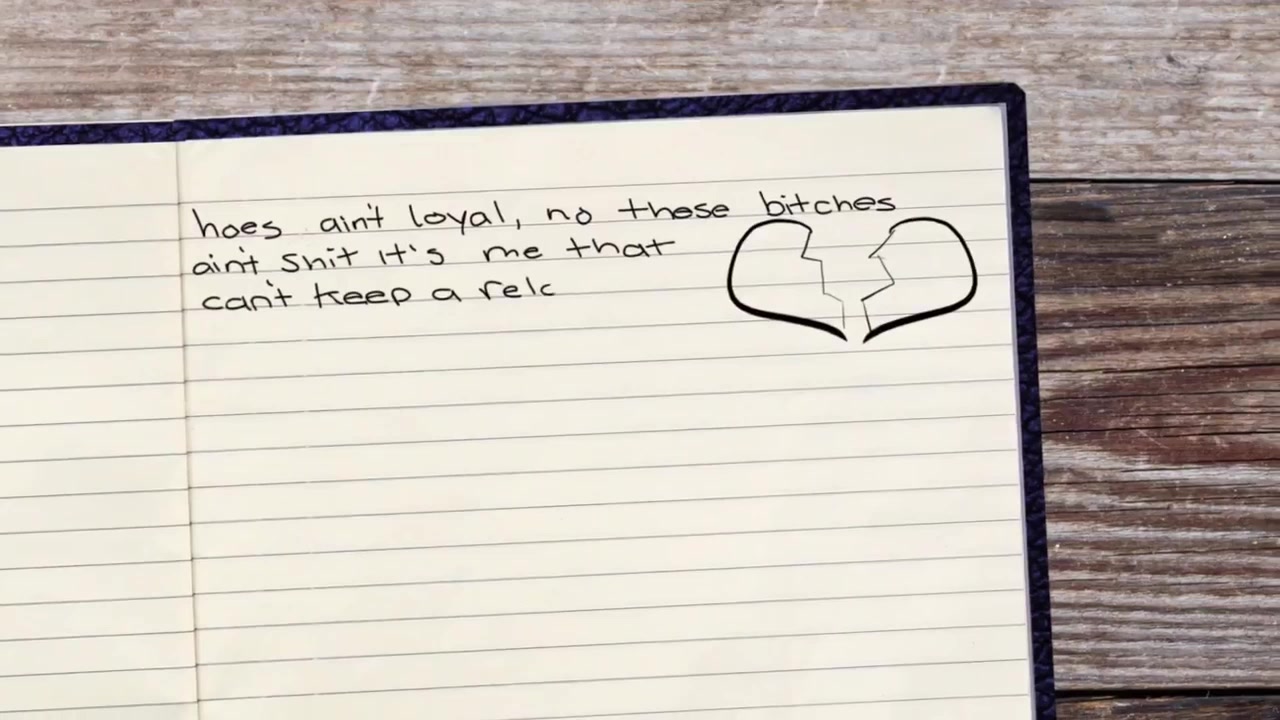 hoes ain't loyal, no these bitches
ain't shit it's me that
can't keep a relc